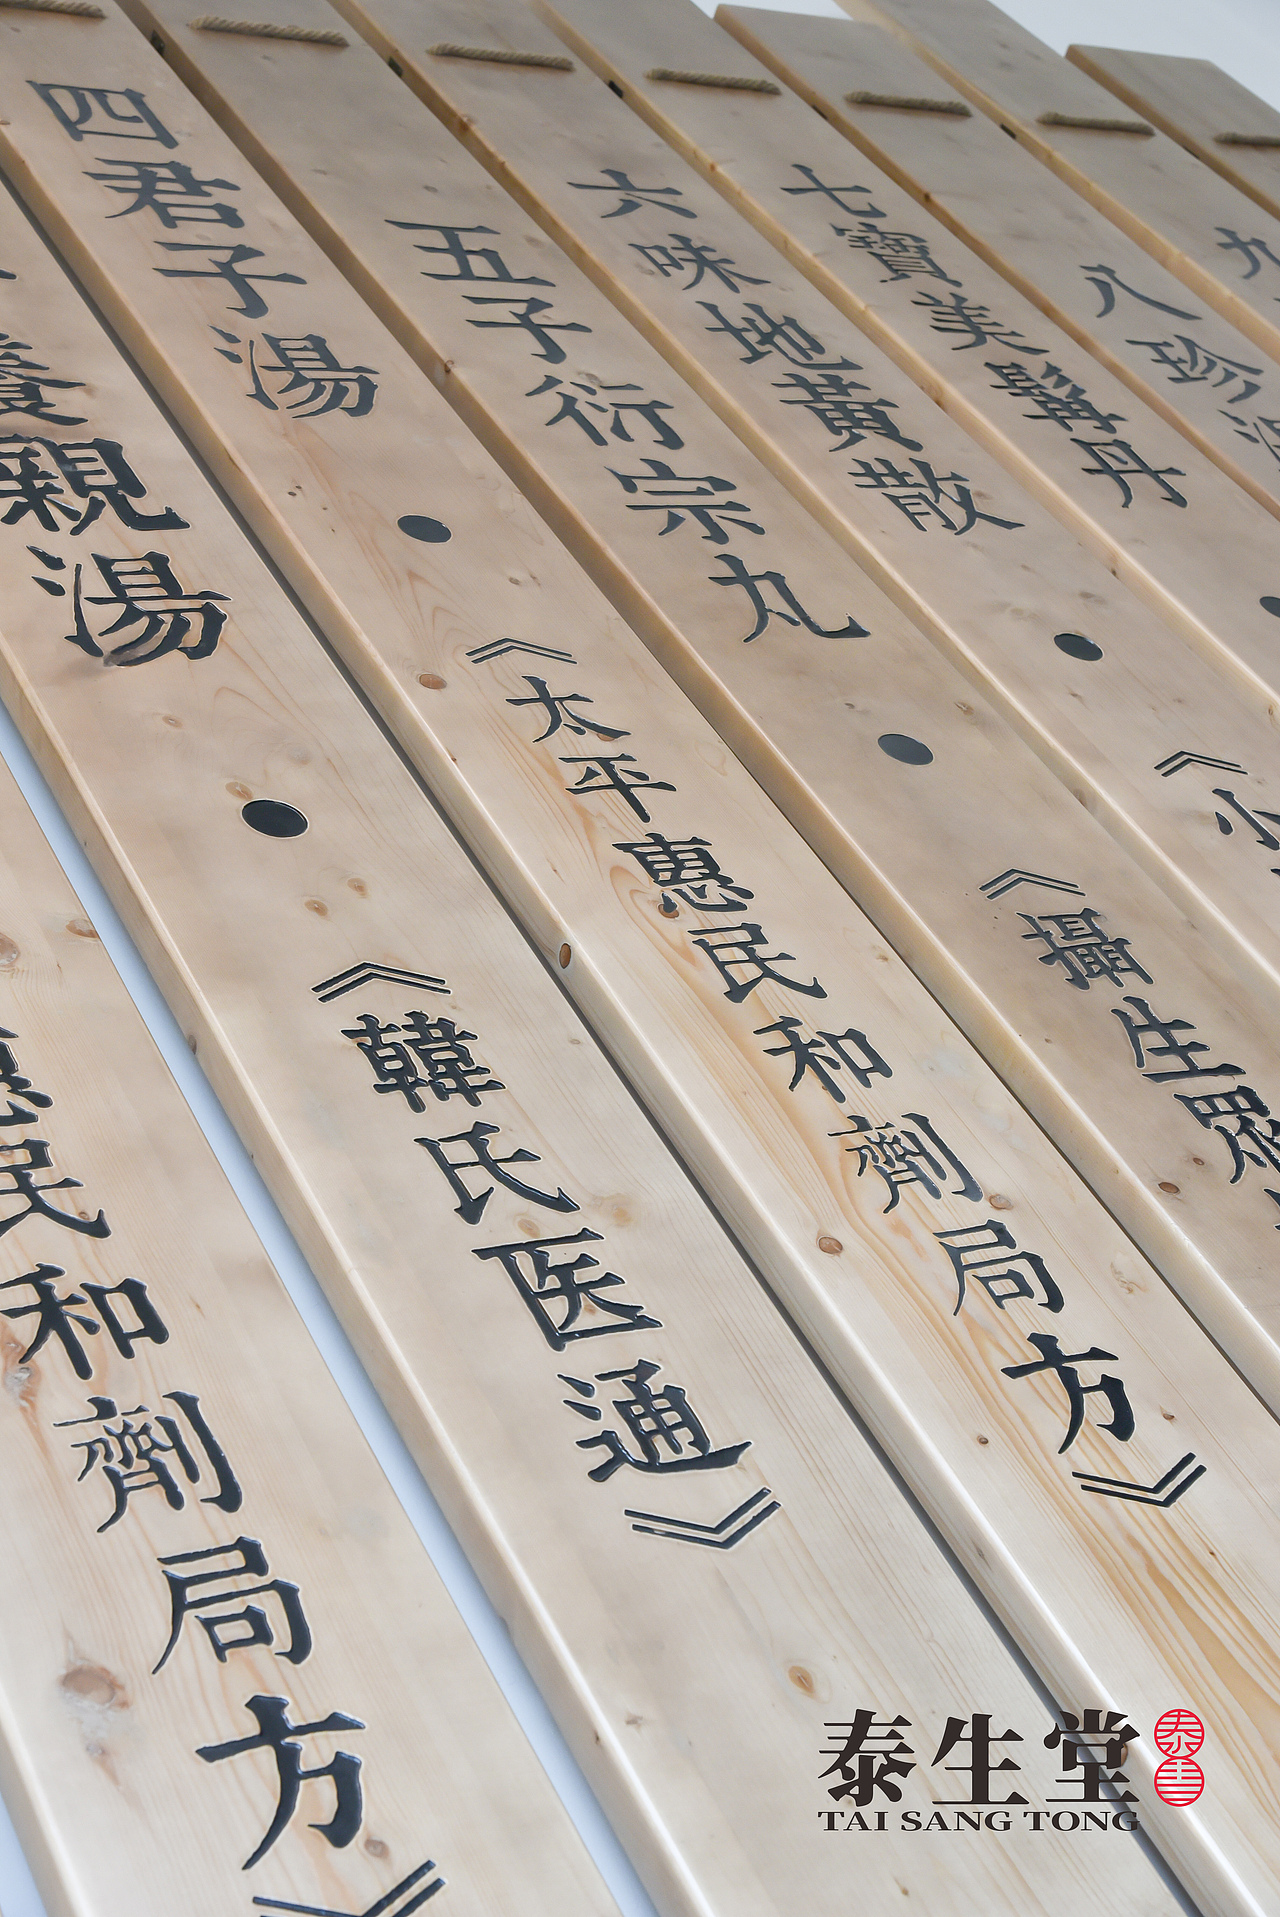 惠民和劑局方》
養親湯●《韓氏医通》
四君子湯●《太平惠民和劑局方》
五子衍宗丸●《攝生眾
六味地黃散●《小
七寶美髯丹●
八珍湯
九
泰生堂
泰生
TAI SANG TONG